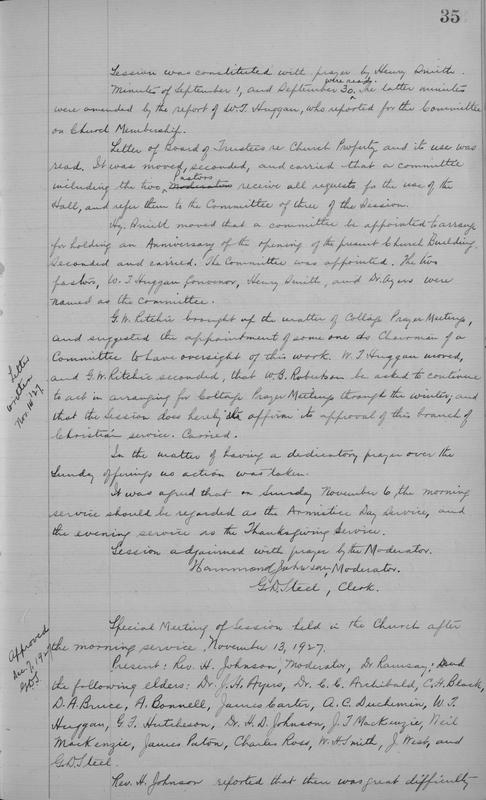 35
Session was constituted with prayer by Henry Smith.
were read.
Minutes of September 1, and September 30. The latter minutes
were amended by the report of W. T. Huggan, who reported for the Committee
on Church Membership.
Letter of Board of Trustees re Church Property and its use was
read. It was moved, seconded, and carried that a committee
Pastors
including the two Moderators receive all requests for the use of the
Hall, and refer them to the Committee of three of the Session.
Hy. Smith moved that a committee be appointed to arrange
for holding an Anniversary of the opening of the present Church Building.
Seconded and carried. The Committee was appointed. The two
pastors, W. T. Huggan Convenor, Henry Smith, and Dr. Ayers were
named as the Committee.
G. W. Ritchie brought up the matter of Cottage Prayer Meetings,
and suggested the appointment of some one as Chairman of a
Committee to have oversight of this work. W. T. Huggan moved,
and G. W. Ritchie seconded, that W. B. Robertson be asked to continue
to act in arranging for Cottage Prayer Meetings through the winter, and
that the Session does hereby affirm its approval of this branch of
Christian service. Carried.
Letter
written
Nov. 16 '27
In the matter of having a dedicatory prayer over the
Sunday offerings no action was taken.
It was agreed that on Sunday November 6, the morning
service should be regarded as the Armistice Day Service, and
the evening service as the Thanksgiving Service.
Session adjourned with prayer by the Moderator.
Hammond Johnson, Moderator.
G. D. Steel, Clerk.
Special Meeting of Session held in the Church after
the morning service, November 13, 1927.
Approved
Dec 7, 1927
GDS
Present: Rev. H. Johnson, Moderator, Dr. Ramsay; and
the following elders: Dr. J. H. Ayers, Dr. C. C. Archibald, C. H. Black,
D. A. Bruce, A. Bonnell, James Carter, A. C. Duchemin, W. T.
Huggan, G. F. Hutcheson, Dr. H. D. Johnson, J. T. MacKenzie, Neil
MacKenzie, James Paton, Charles Ross, W. H. Smith, J. West, and
G. D. Steel.
Rev. H. Johnson reported that there was great difficulty